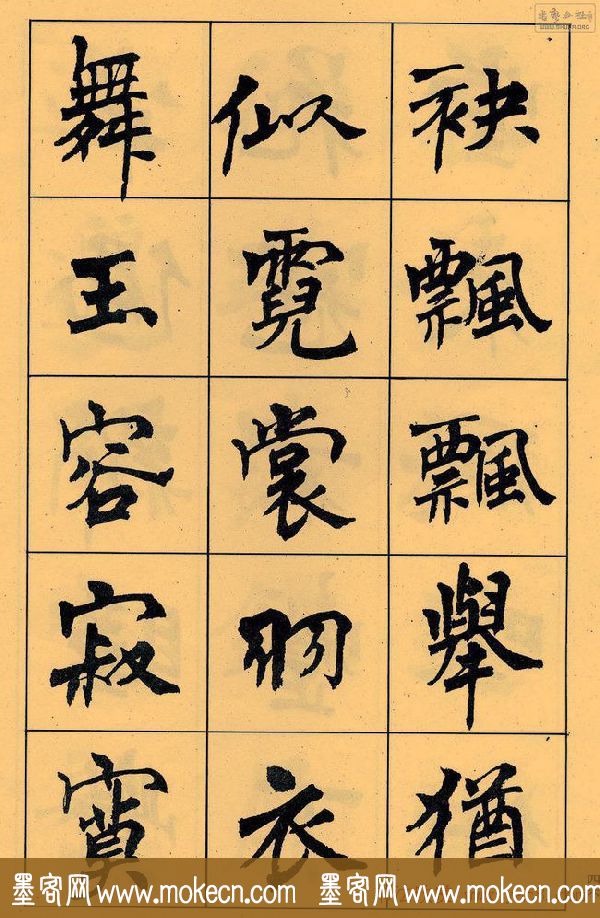 袂飄飄舉猶
似霓裳羽衣
舞玉容寂寞
墨客网 www.mokecn.com 墨客网 www.mokecn.com